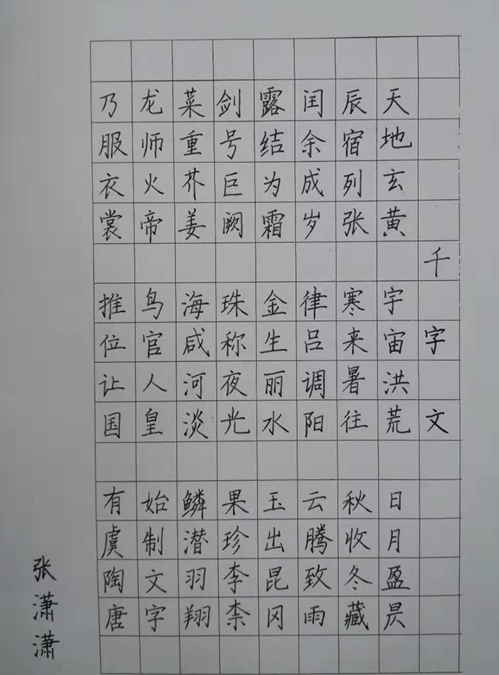 千字文
天地玄黄 宇宙洪荒 日月盈昃
辰宿列张 寒来暑往 秋收冬藏
闰余成岁 律吕调阳 云腾致雨
露结为霜 金生丽水 玉出昆冈
剑号巨阙 珠称夜光 果珍李柰
菜重芥姜 海咸河淡 鳞潜羽翔
龙师火帝 鸟官人皇 始制文字
乃服衣裳 推位让国 有虞陶唐
张潇潇